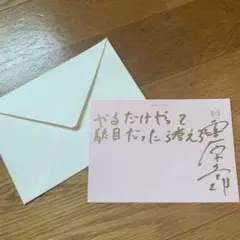 やるだけやって
駄目だったら考えろ